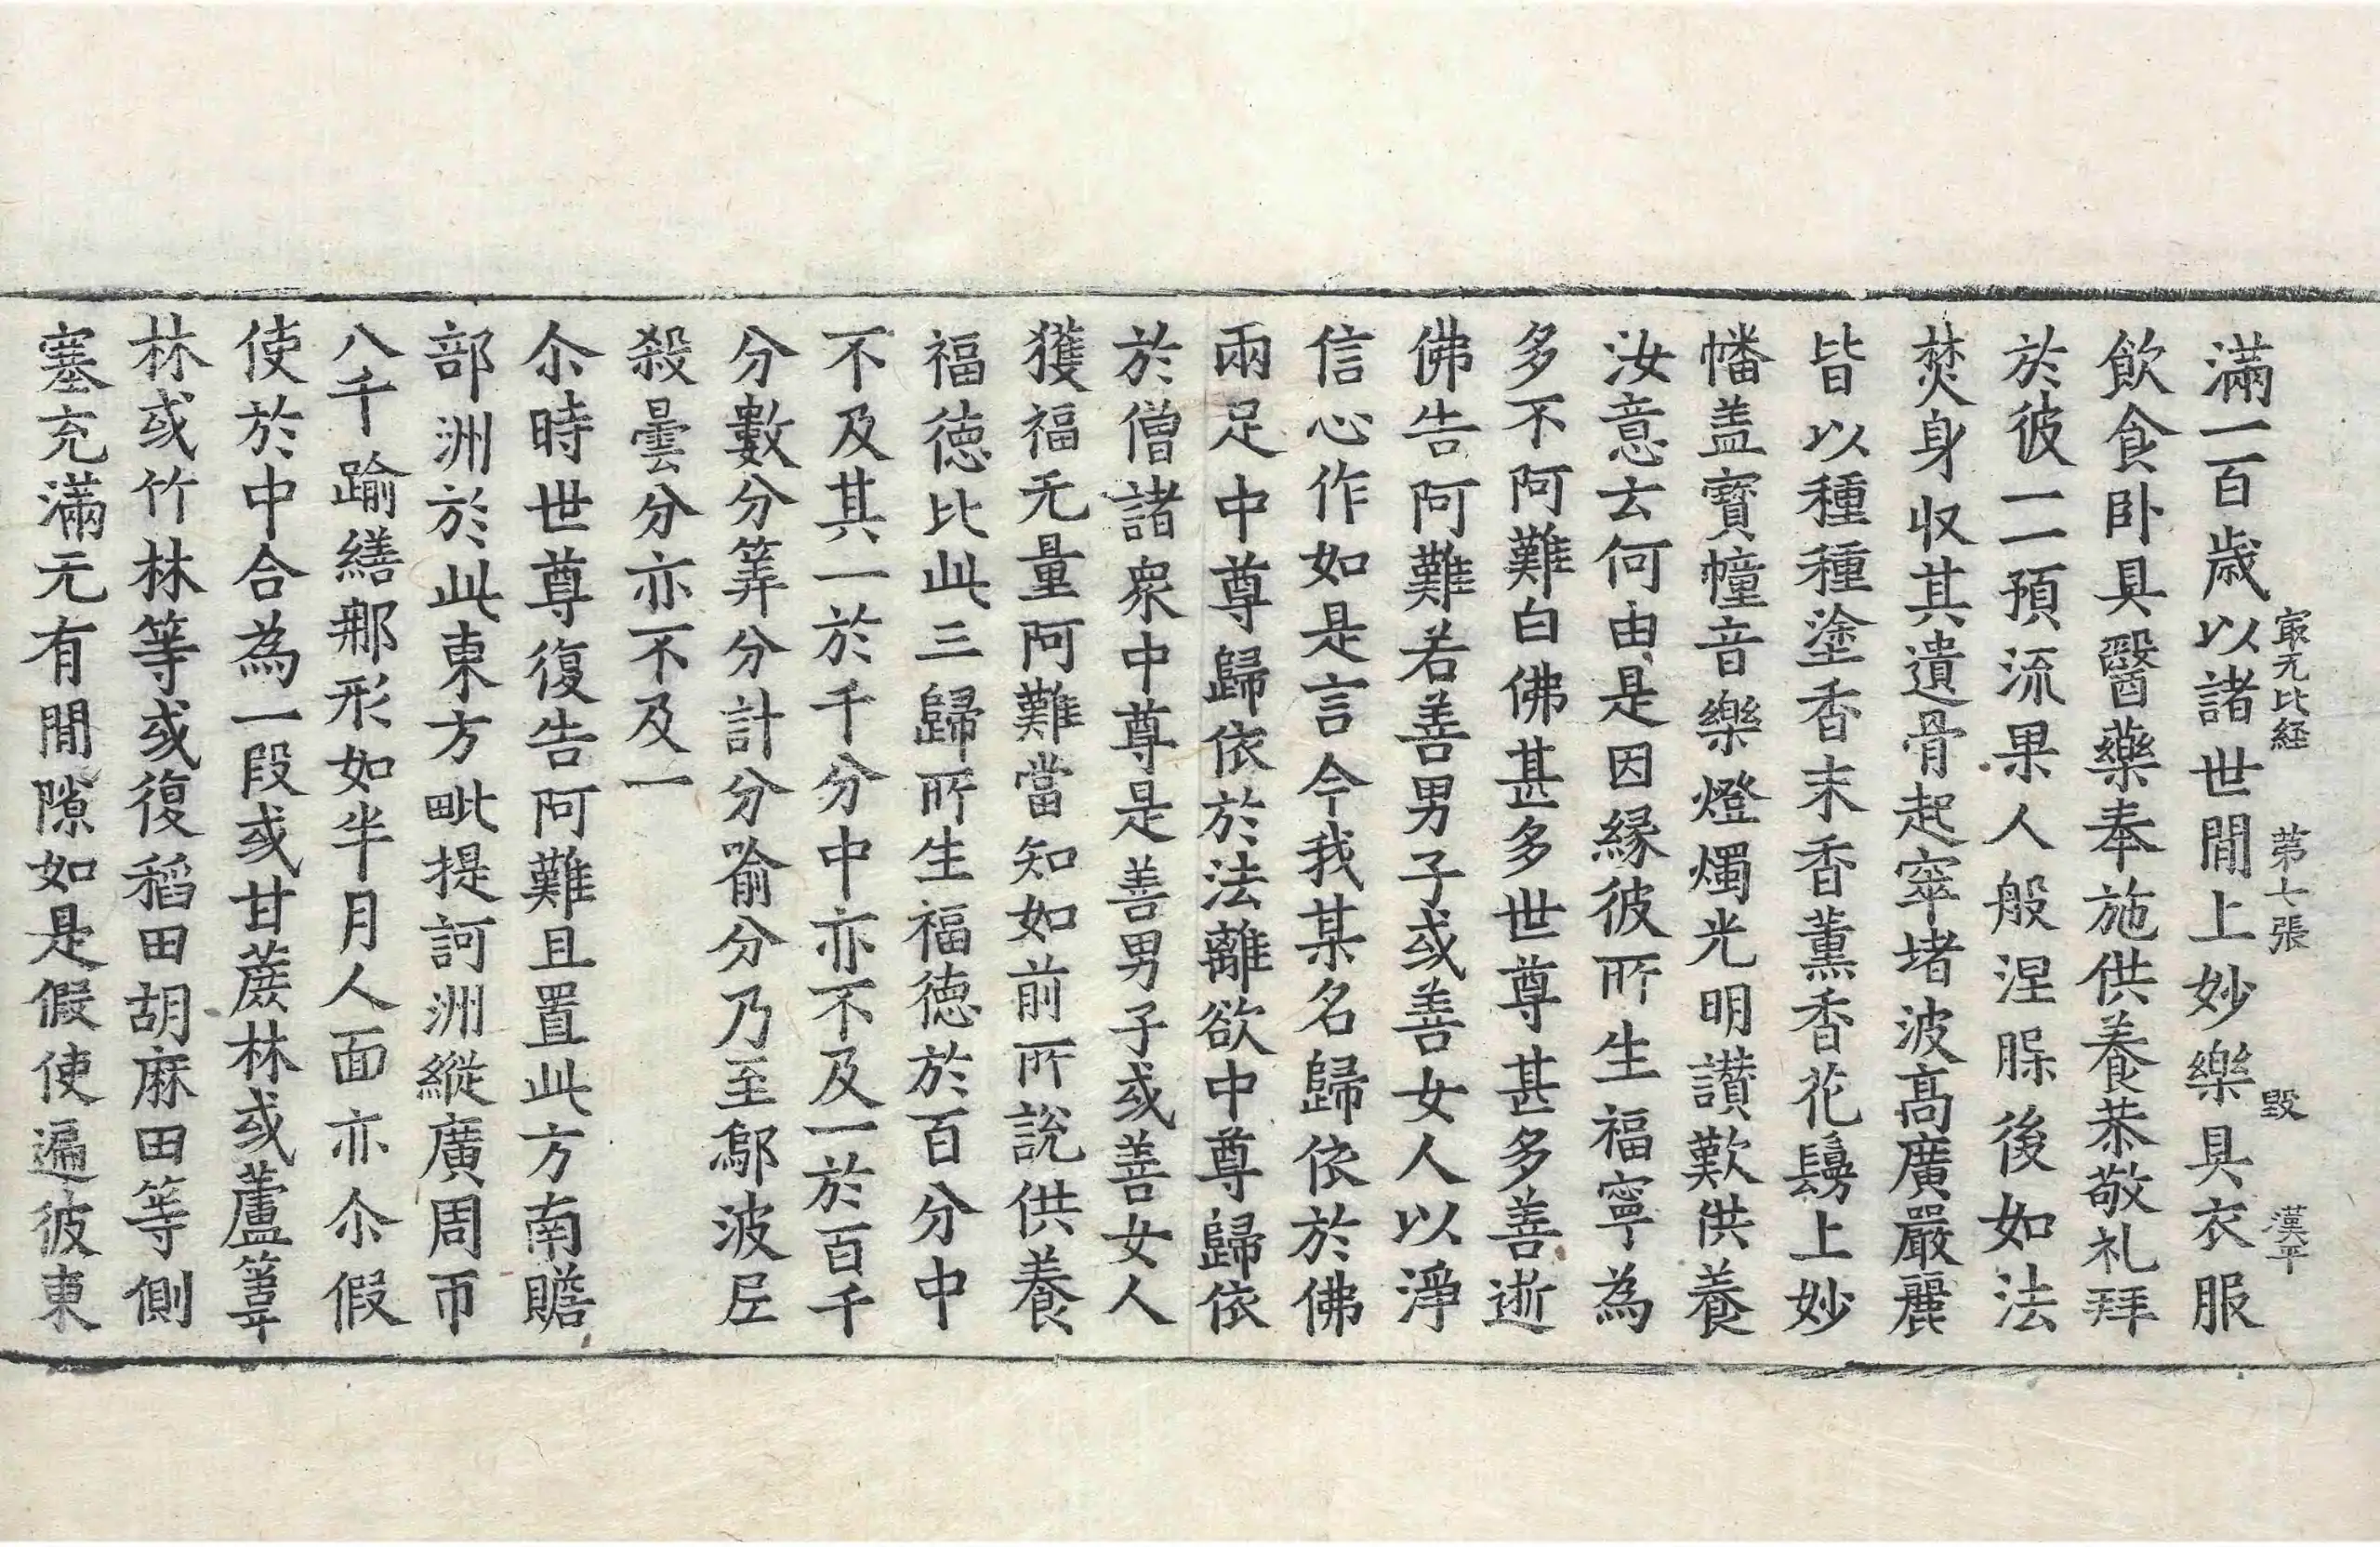 㝡无比経 第七張 毀 漢平
滿一百歳以諸世間上妙樂具衣服
飲食卧具醫藥奉施供養恭敬礼拜
於彼一一預流果人般涅腂後如法
焚身収其遺骨起窣堵波髙廣嚴麗
皆以種種塗香末香薰香花鬘上妙
幡盖寳幢音樂燈燭光明讃歎供養
汝意云何由是因縁彼所生福寧為
多不阿難白佛甚多世尊甚多善逝
佛告阿難若善男子或善女人以淨
信心作如是言今我某名歸依於佛
兩足中尊歸依於法離欲中尊歸依
於僧諸衆中尊是善男子或善女人
獲福无量阿難當知如前所說供養
福徳比此三歸所生福徳於百分中
不及其一於千分中亦不及一於百千
分數分筭分計分喻分乃至鄔波尼
殺曇分亦不及一
尒時世尊復告阿難且置此方南贍
部洲於此東方毗提訶洲縱廣周帀
八千踰繕那形如半月人面亦尒假
使於中合為一段或甘蔗林或蘆葦
林或竹林等或復稻田胡麻田等側
塞充滿无有間隙如是假使遍彼東